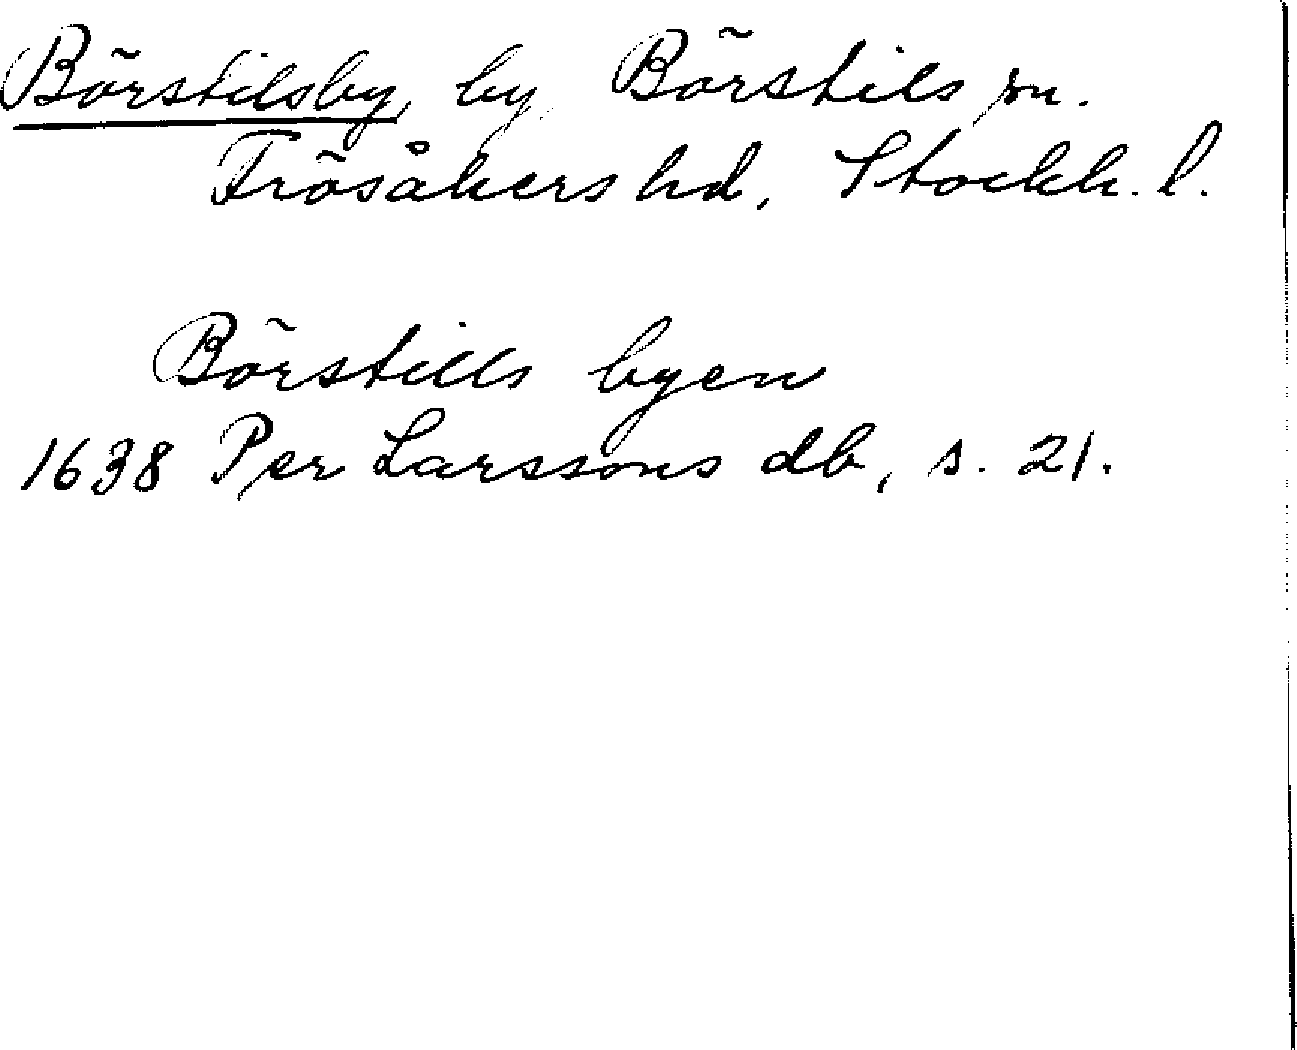 Börstilsby, by, Börstils sn.
Frösåkers hd, Stockh. l.
Börstills byen
1638 Per Larssons db, s. 21.